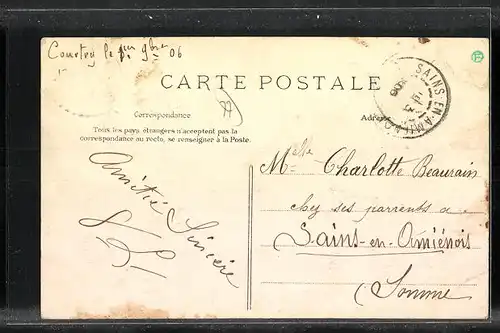 Courtry le 1er 9bre 06
CARTE POSTALE
Correspondance
Adresse
Tous les pays étrangers n'acceptent pas la
correspondance au recto, se renseigner à la Poste.
SAINS-EN-AMIENOIS
Amitié Sincère
Melle Charlotte Beaurain
chez ses parrents a
Sains-en-Amiénois
Somme